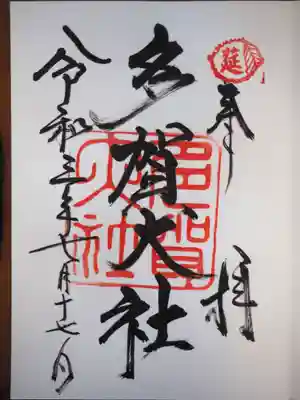 延
奉拝
多賀大社
多賀大社
令和三年七月十七日